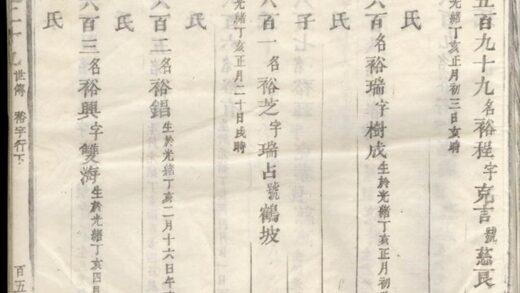 五百九十九名裕程字克言號慈良
光緒丁亥正月初三日亥時
氏
六百名裕瑞字樹成生於光緒丁亥正月初
氏
子
六百一名裕芝字瑞占號鶴坡
光緒丁亥正月二十日時
氏
六百二名裕錩生於光緒丁亥二月十六日午
氏
六百三名裕興字雙海生於光緒丁亥四月
氏
世傳 裕字行下 百五